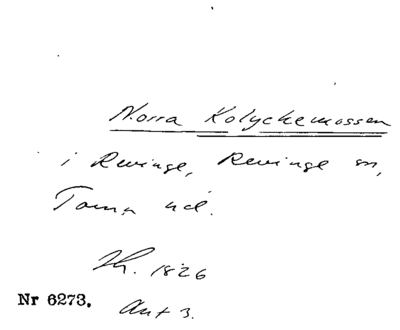 Norra Kolyckemossen
i Revinge, Revinge sn,
Torna hd.
Lh. 1826
Nr 6273. Akt 3.